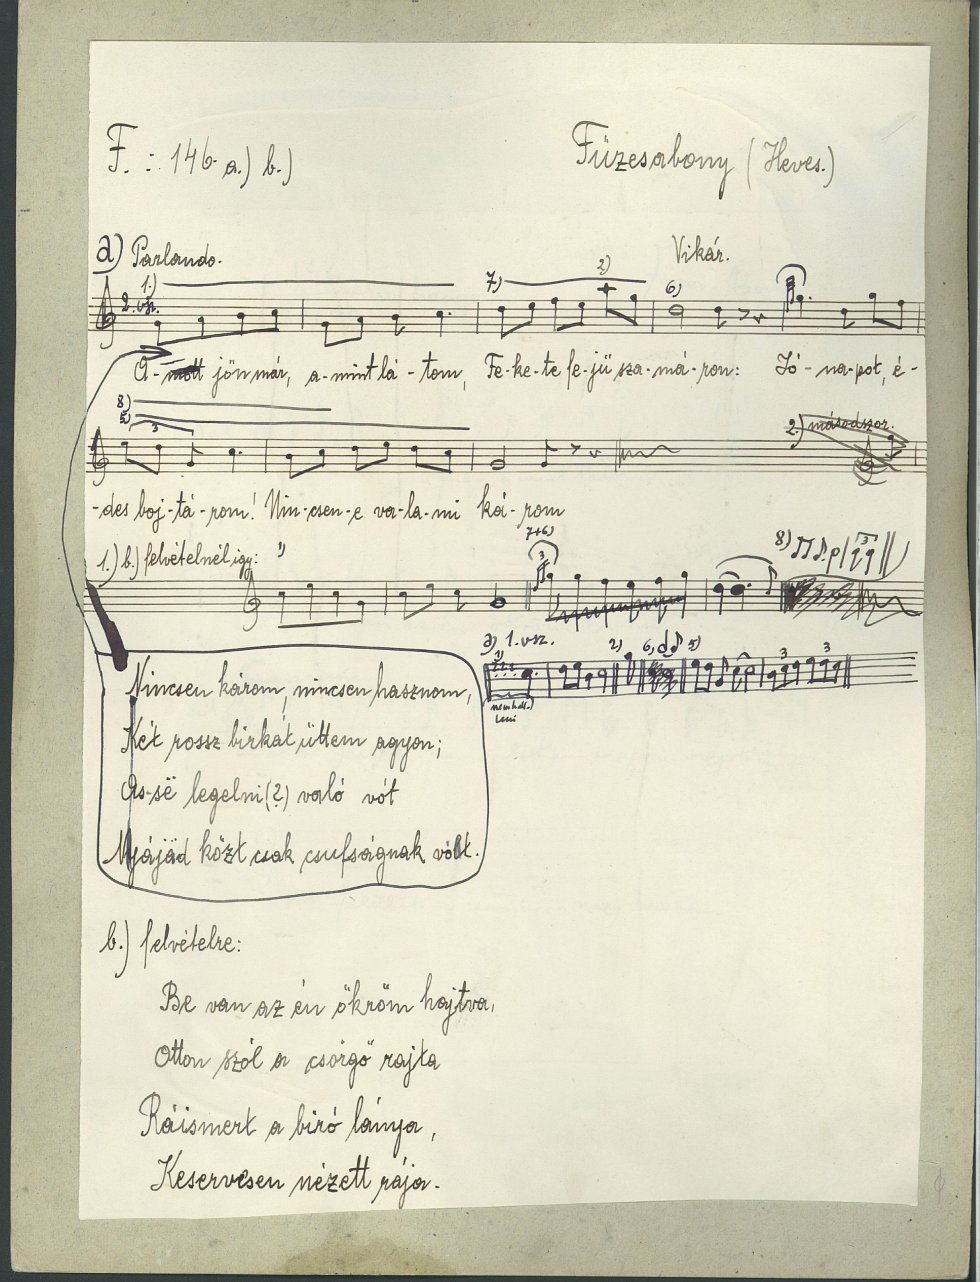 F. : 146 a.) b.)
Füzesabony (Heves.)
a) Parlando.
Vikár.
1.)
7)
2)
6)
2. vsz.
A-mott jön már, a-mint lá-tom, Fe-ke-te fe-jü sza-má-ron: Jó-na-pot, é-
8)
5)
3
2.) másodszor.
-des boj-tá-rom! Nin-csen-e va-la-mi ká-rom
1.) b.) felvételnél így:
1)
7+6)
3
8)
3
a) 1. vsz.
1)
2)
6)
5)
3
3
Nincsen károm, nincsen hasznom,
Két rossz birkát üttem agyon;
As-së legelni(?) való vót
Nyájäd közt csak csufságnak vólt.
b.) felvételre:
Be van az én ökröm hajtva,
Otton szól a csörgő rajta
Ráismert a biró lánya,
Keservesen nézett rája.